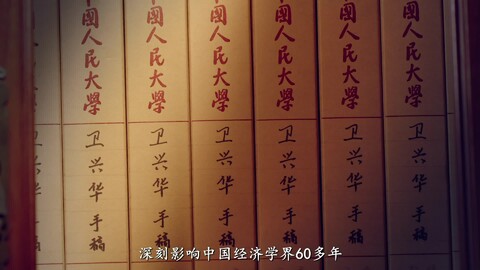 中國人民大學
卫兴华手稿
中國人民大學
卫兴华手稿
中國人民大學
卫兴华手稿
中國人民大學
卫兴华手稿
中國人民大學
卫兴华手稿
中國人民大學
卫兴华手稿
卫兴华手稿
深刻影响中国经济学界60多年